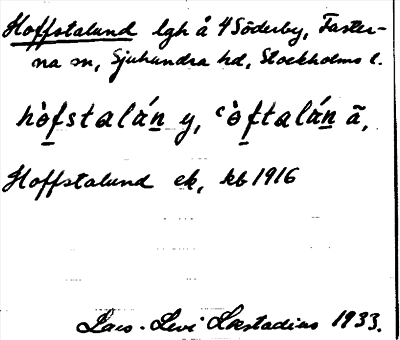 Hoffstalund lgh å 4 Söderby, Faster-
na sn, Sjuhundra hd, Stockholms l.
hòfstalán y, ʿòftalán ã,
Hoffstalund ek, kb 1916
Lars-Levi Læstadius 1933.